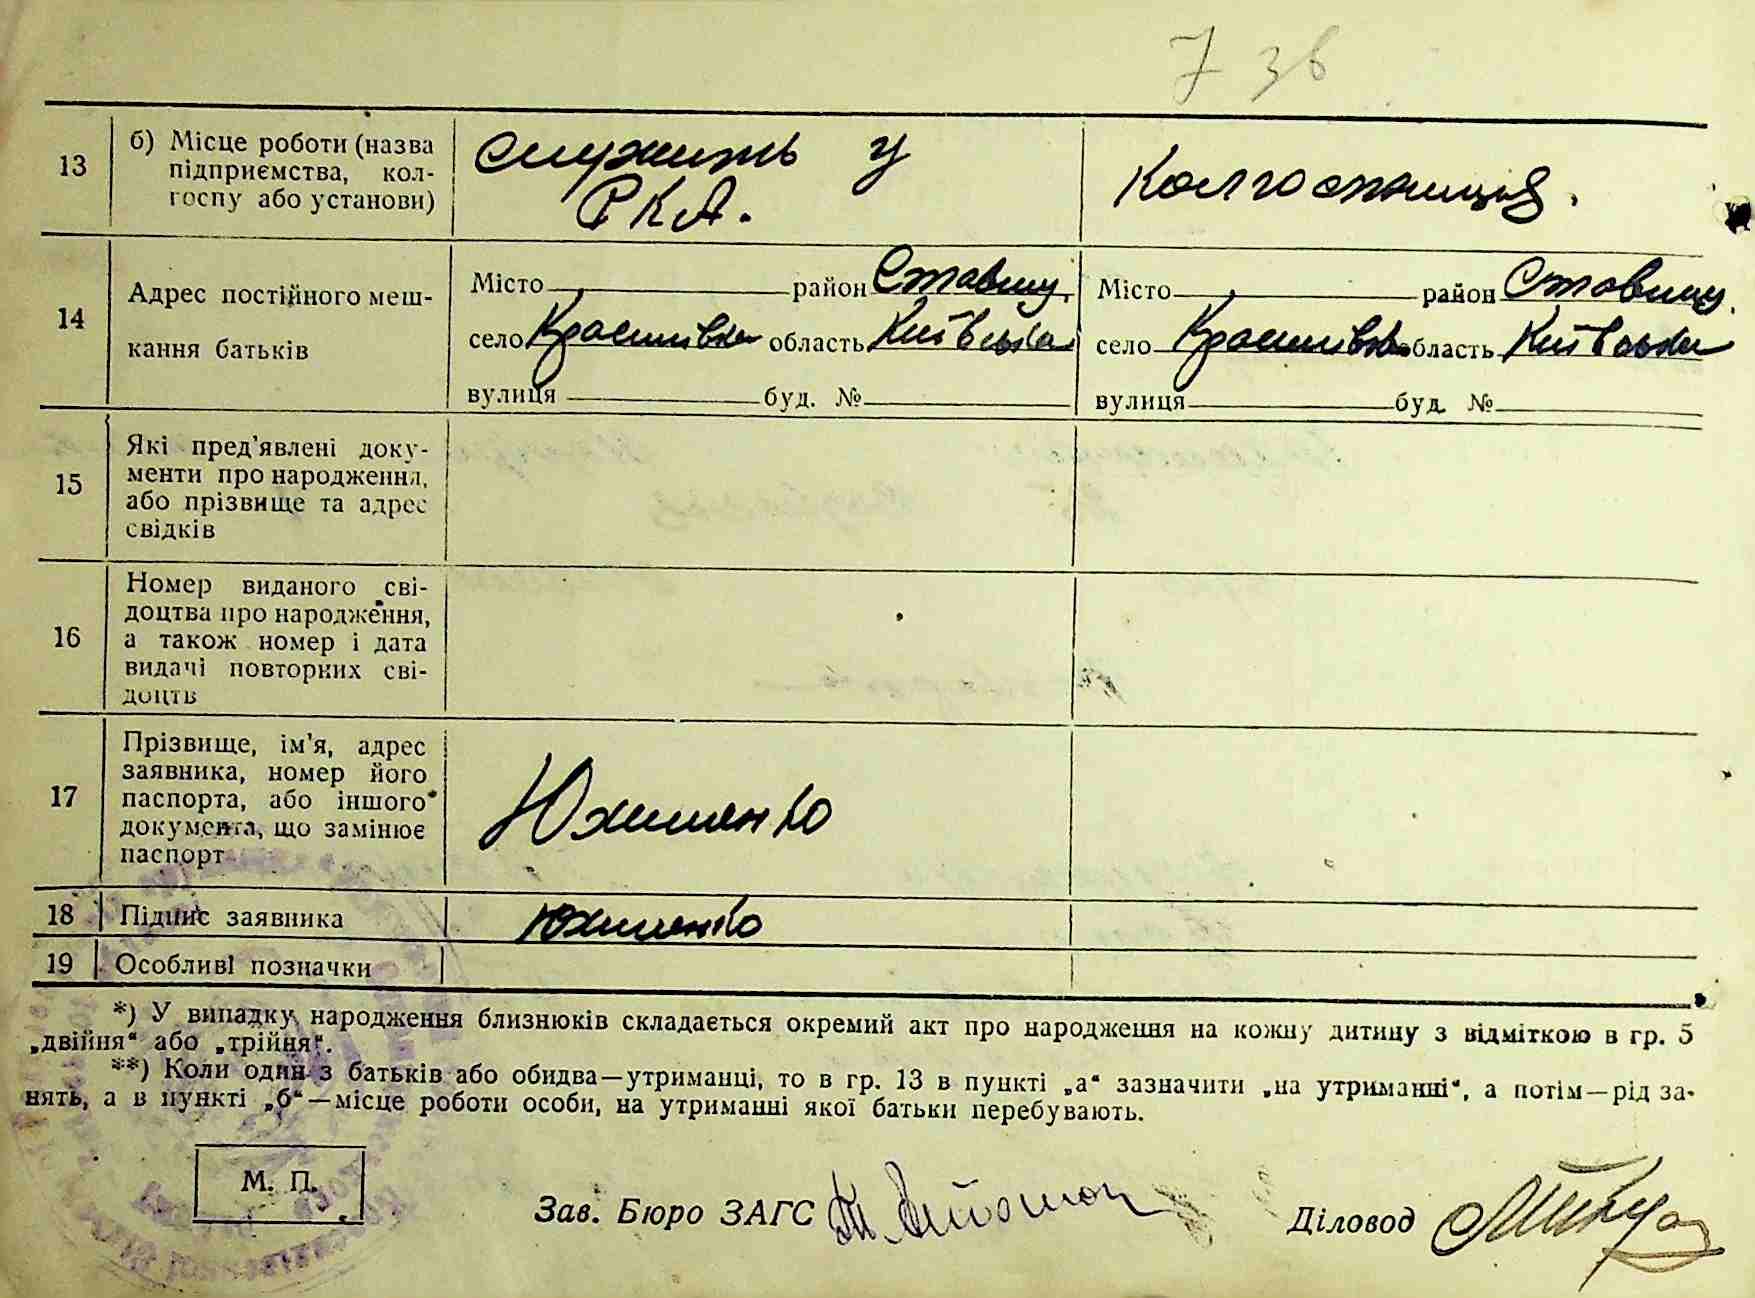 7 зв
13
б) Місце роботи (назва
підприємства, кол-
госпу або установи)
служить у
РКА.
Колгоспниця.
14
Адрес постійного меш-
кання батьків
Місто район Ставищ.
село Красилівка область Київська
вулиця буд. №
Місто район Ставищ.
село Красилівка область Київська
вулиця буд. №
15
Які пред'явлені доку-
менти про народження,
або прізвище та адрес
свідків
16
Номер виданого сві-
доцтва про народження,
а також номер і дата
видачі повторних сві-
доцтв
17
Прізвище, ім'я, адрес
заявника, номер його
паспорта, або іншого
документа, що замінює
паспорт
Юхименко
18 Підпис заявника
Юхименко
19 Особливі позначки
*) У випадку народження близнюків складається окремий акт про народження на кожну дитину з відміткою в гр. 5
„двійня“ або „трійня“.
**) Коли один з батьків або обидва—утриманці, то в гр. 13 в пункті „а“ зазначити „на утриманні“, а потім—рід за-
нять, а в пункті „б“—місце роботи особи, на утриманні якої батьки перебувають.
М. П.
Зав. Бюро ЗАГС
Діловод